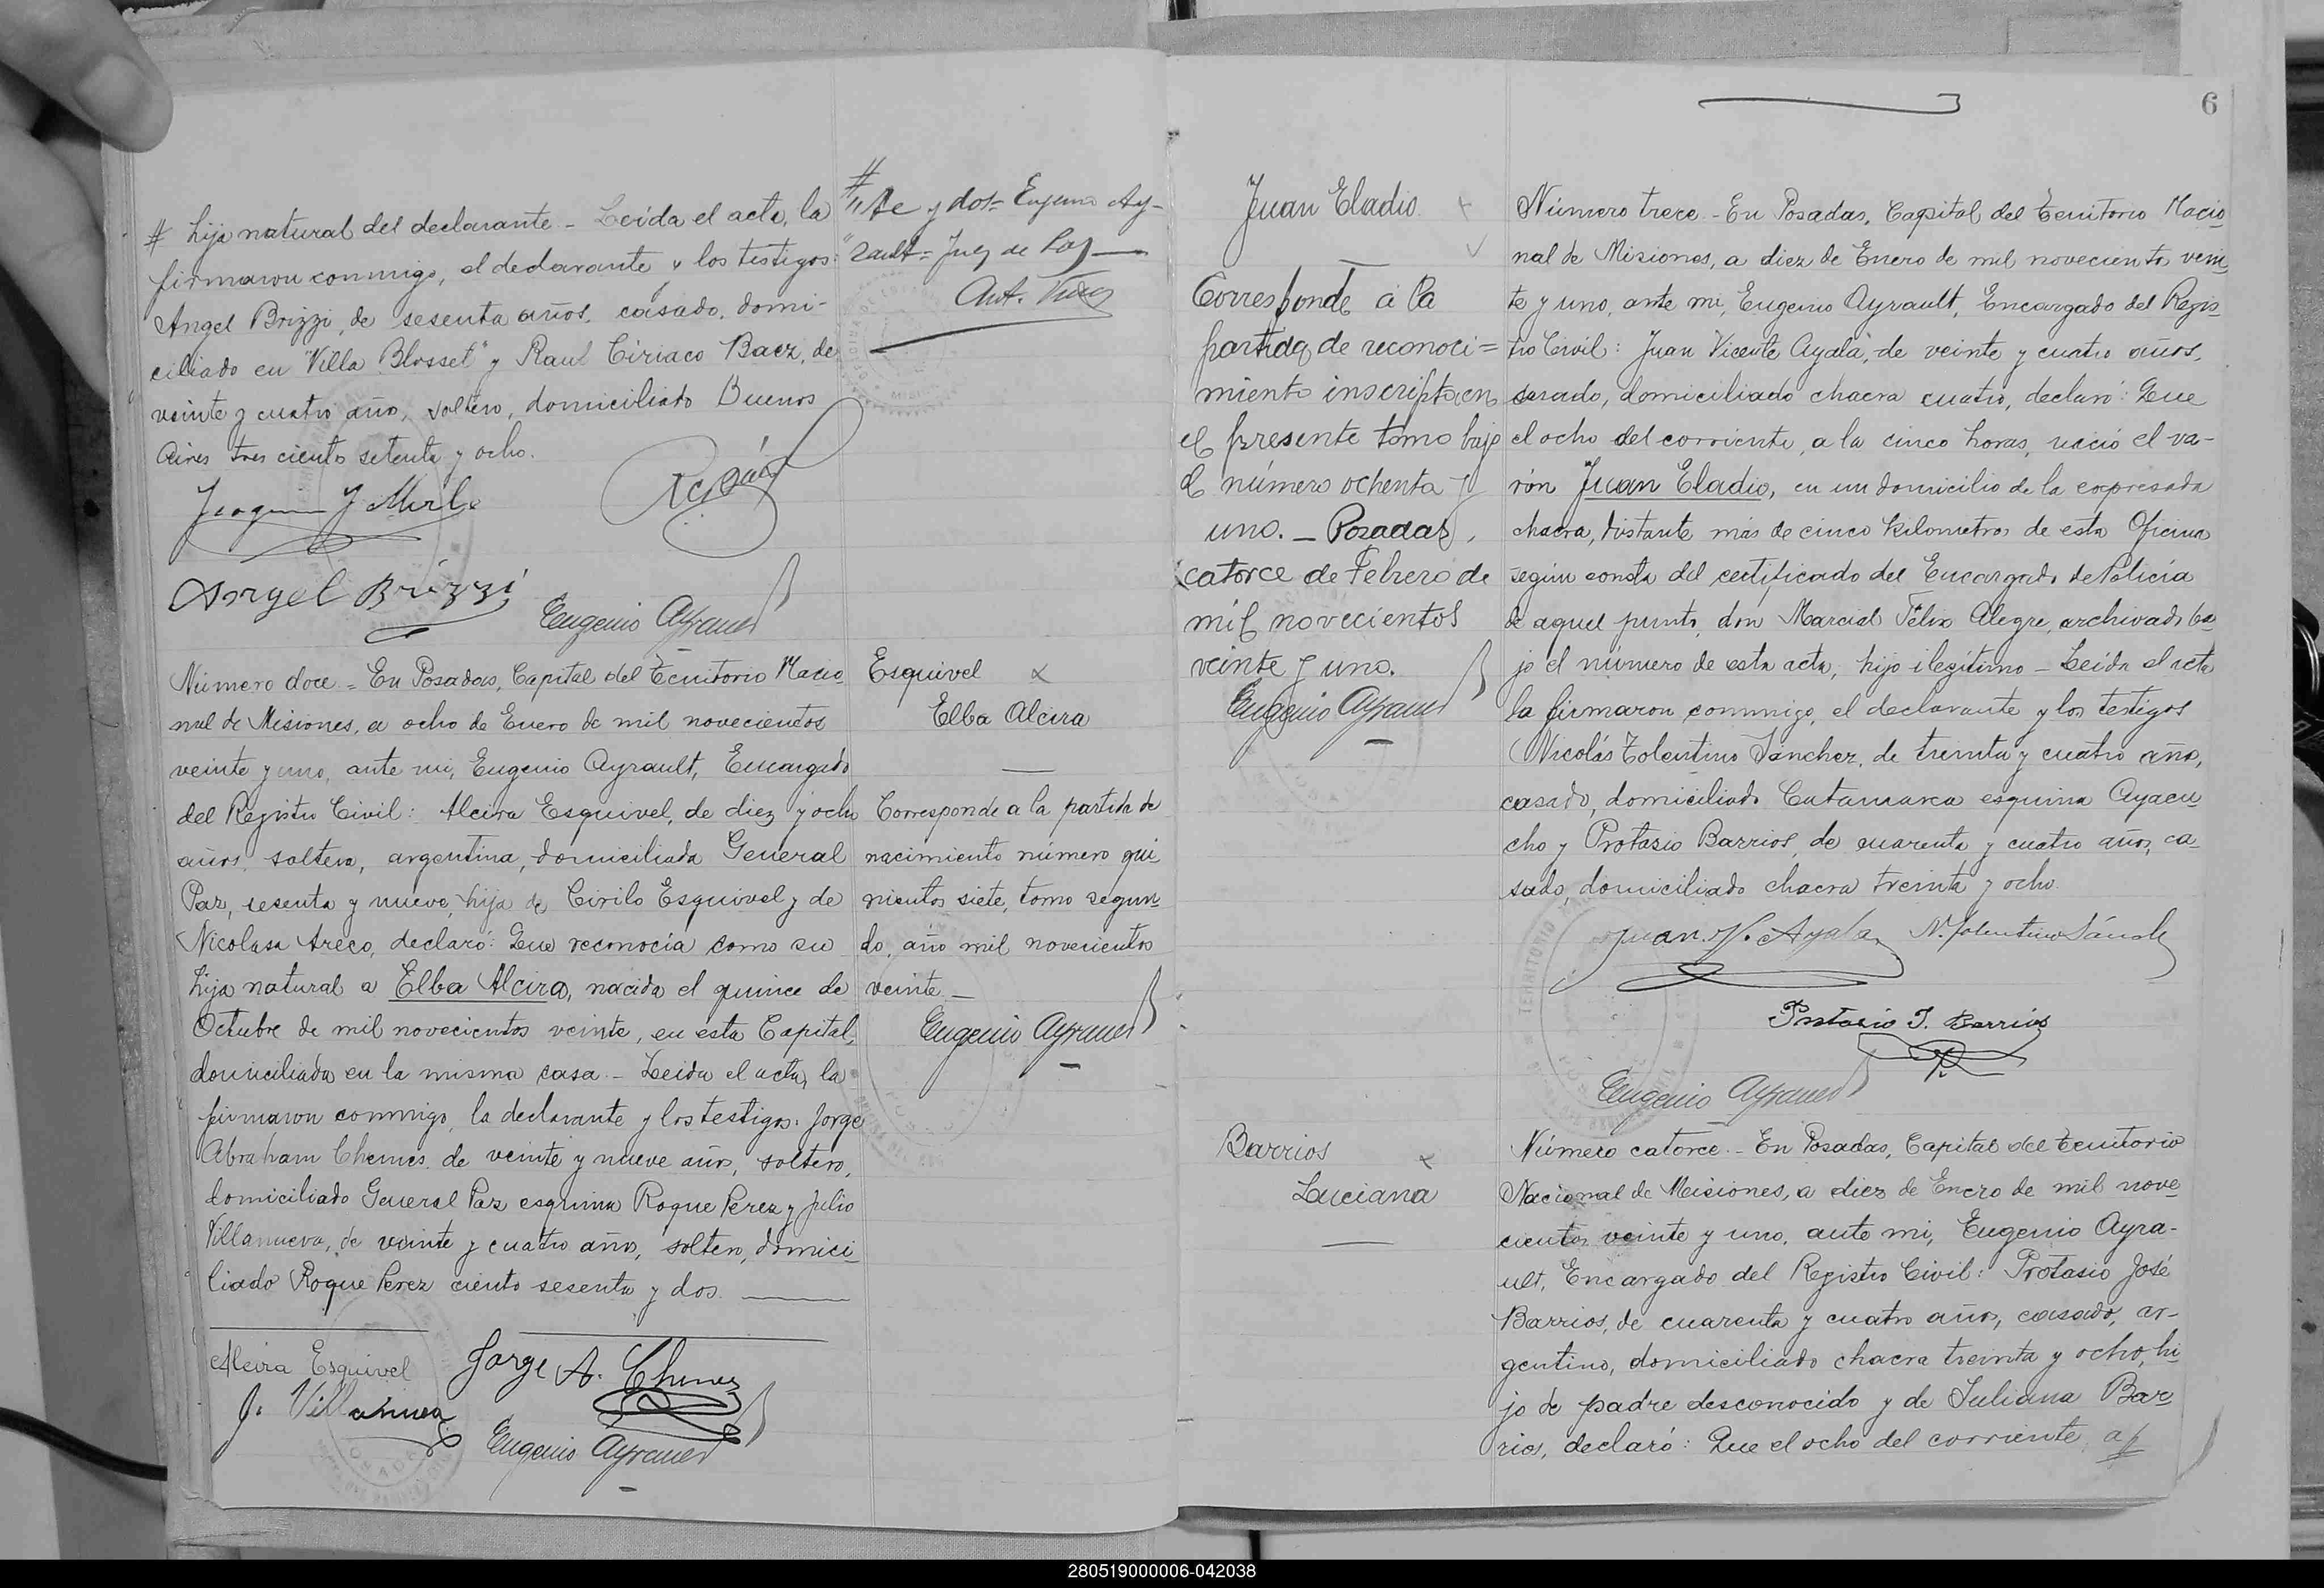 # hija natural del declarante - Leída el acta, la
firmaron conmigo, el declarante y los testigos:
Angel Brizzi, de sesenta años, casado, domi-
ciliado en "Villa Blosset" y Raul Ciriaco Baez, de
veinte y cuatro año, soltero, domiciliado Buenos
Aires tres ciento setenta y ocho.
Joaquin J Merlo
Angel Brizzi
Eugenio Ayrault
#
"te y dos = Eugenio Ay-
"rault = Juez de Paz
Número doce = En Posadas, Capital del Territorio Nacio
nal de Misiones, a ocho de Enero de mil novecientos
veinte y uno, ante mi, Eugenio Ayrault, Encargado
del Registro Civil: Alcira Esquivel, de diez y ocho
años, soltera, argentina, domiciliada General
Paz, sesenta y nueve, hija de Cirilo Esquivel y de
Nicolasa Areco, declaró: Que reconocía como su
hija natural a Elba Alcira, nacida el quince de
Octubre de mil novecientos veinte, en esta Capital,
domiciliada en la misma casa. - Leida el acta, la
firmaron conmigo, la declarante y los testigos: Jorge
Abraham Chemes, de veinte y nueve año, soltero,
domiciliado General Paz esquina Roque Perez y Julio
Villanueva, de veinte y cuatro año, soltero, domici
liado Roque Perez ciento sesenta y dos.
Alcira Esquivel
Jorge A. Chemes
J. Villanueva
Eugenio Ayrault
Esquivel
Elba Alcira
Corresponde a la partida de
nacimiento número qui-
nientos siete, tomo segun-
do, año mil novecientos
veinte. -
Eugenio Ayrault
6
Juan Eladio
Corresponde á la
partida de reconoci=
miento inscripta en
el presente tomo bajo
el número ochenta y
uno. - Posadas,
catorce de Febrero de
mil novecientos
veinte y uno.
Eugenio Ayrault
Número trece - En Posadas, Capital del Territorio Nacio
nal de Misiones, a diez de Enero de mil noveciento vein
te y uno, ante mi, Eugenio Ayrault, Encargado del Regis
tro Civil: Juan Vicente Ayala, de veinte y cuatro años,
casado, domiciliado chacra cuatro, declaró: Que
el ocho del corriente, a la cinco horas, nació el va-
rón Juan Eladio, en un domicilio de la expresada
chacra, distante más de cinco kilometros de esta Oficina
según consta del certificado del Encargado de Policía
de aquel punto, don Marcial Félix Alegre, archivado ba
jo el número de esta acta, hijo ilegítimo - Leida el acta
la firmaron conmigo, el declarante y los testigos
Nicolás Tolentino Sánchez, de treinta y cuatro año,
casado, domiciliado Catamarca esquina Ayacu
cho y Protasio Barrios, de cuarenta y cuatro año, ca-
sado, domiciliado chacra treinta y ocho.
Juan V. Ayala
N. Tolentino Sánch
Protasio J. Barrios
Eugenio Ayrault
Barrios
Luciana
Número catorce. - En Posadas, Capital del Territorio
Nacional de Misiones, a diez de Enero de mil nove
cientos veinte y uno, ante mi, Eugenio Ayra-
ult, Encargado del Registro Civil: Protasio José
Barrios, de cuarenta y cuatro año, casado, ar-
gentino, domiciliado chacra treinta y ocho, hi
jo de padre desconocido y de Juliana Bar
rios, declaró: Que el ocho del corriente, a
280519000006-042038